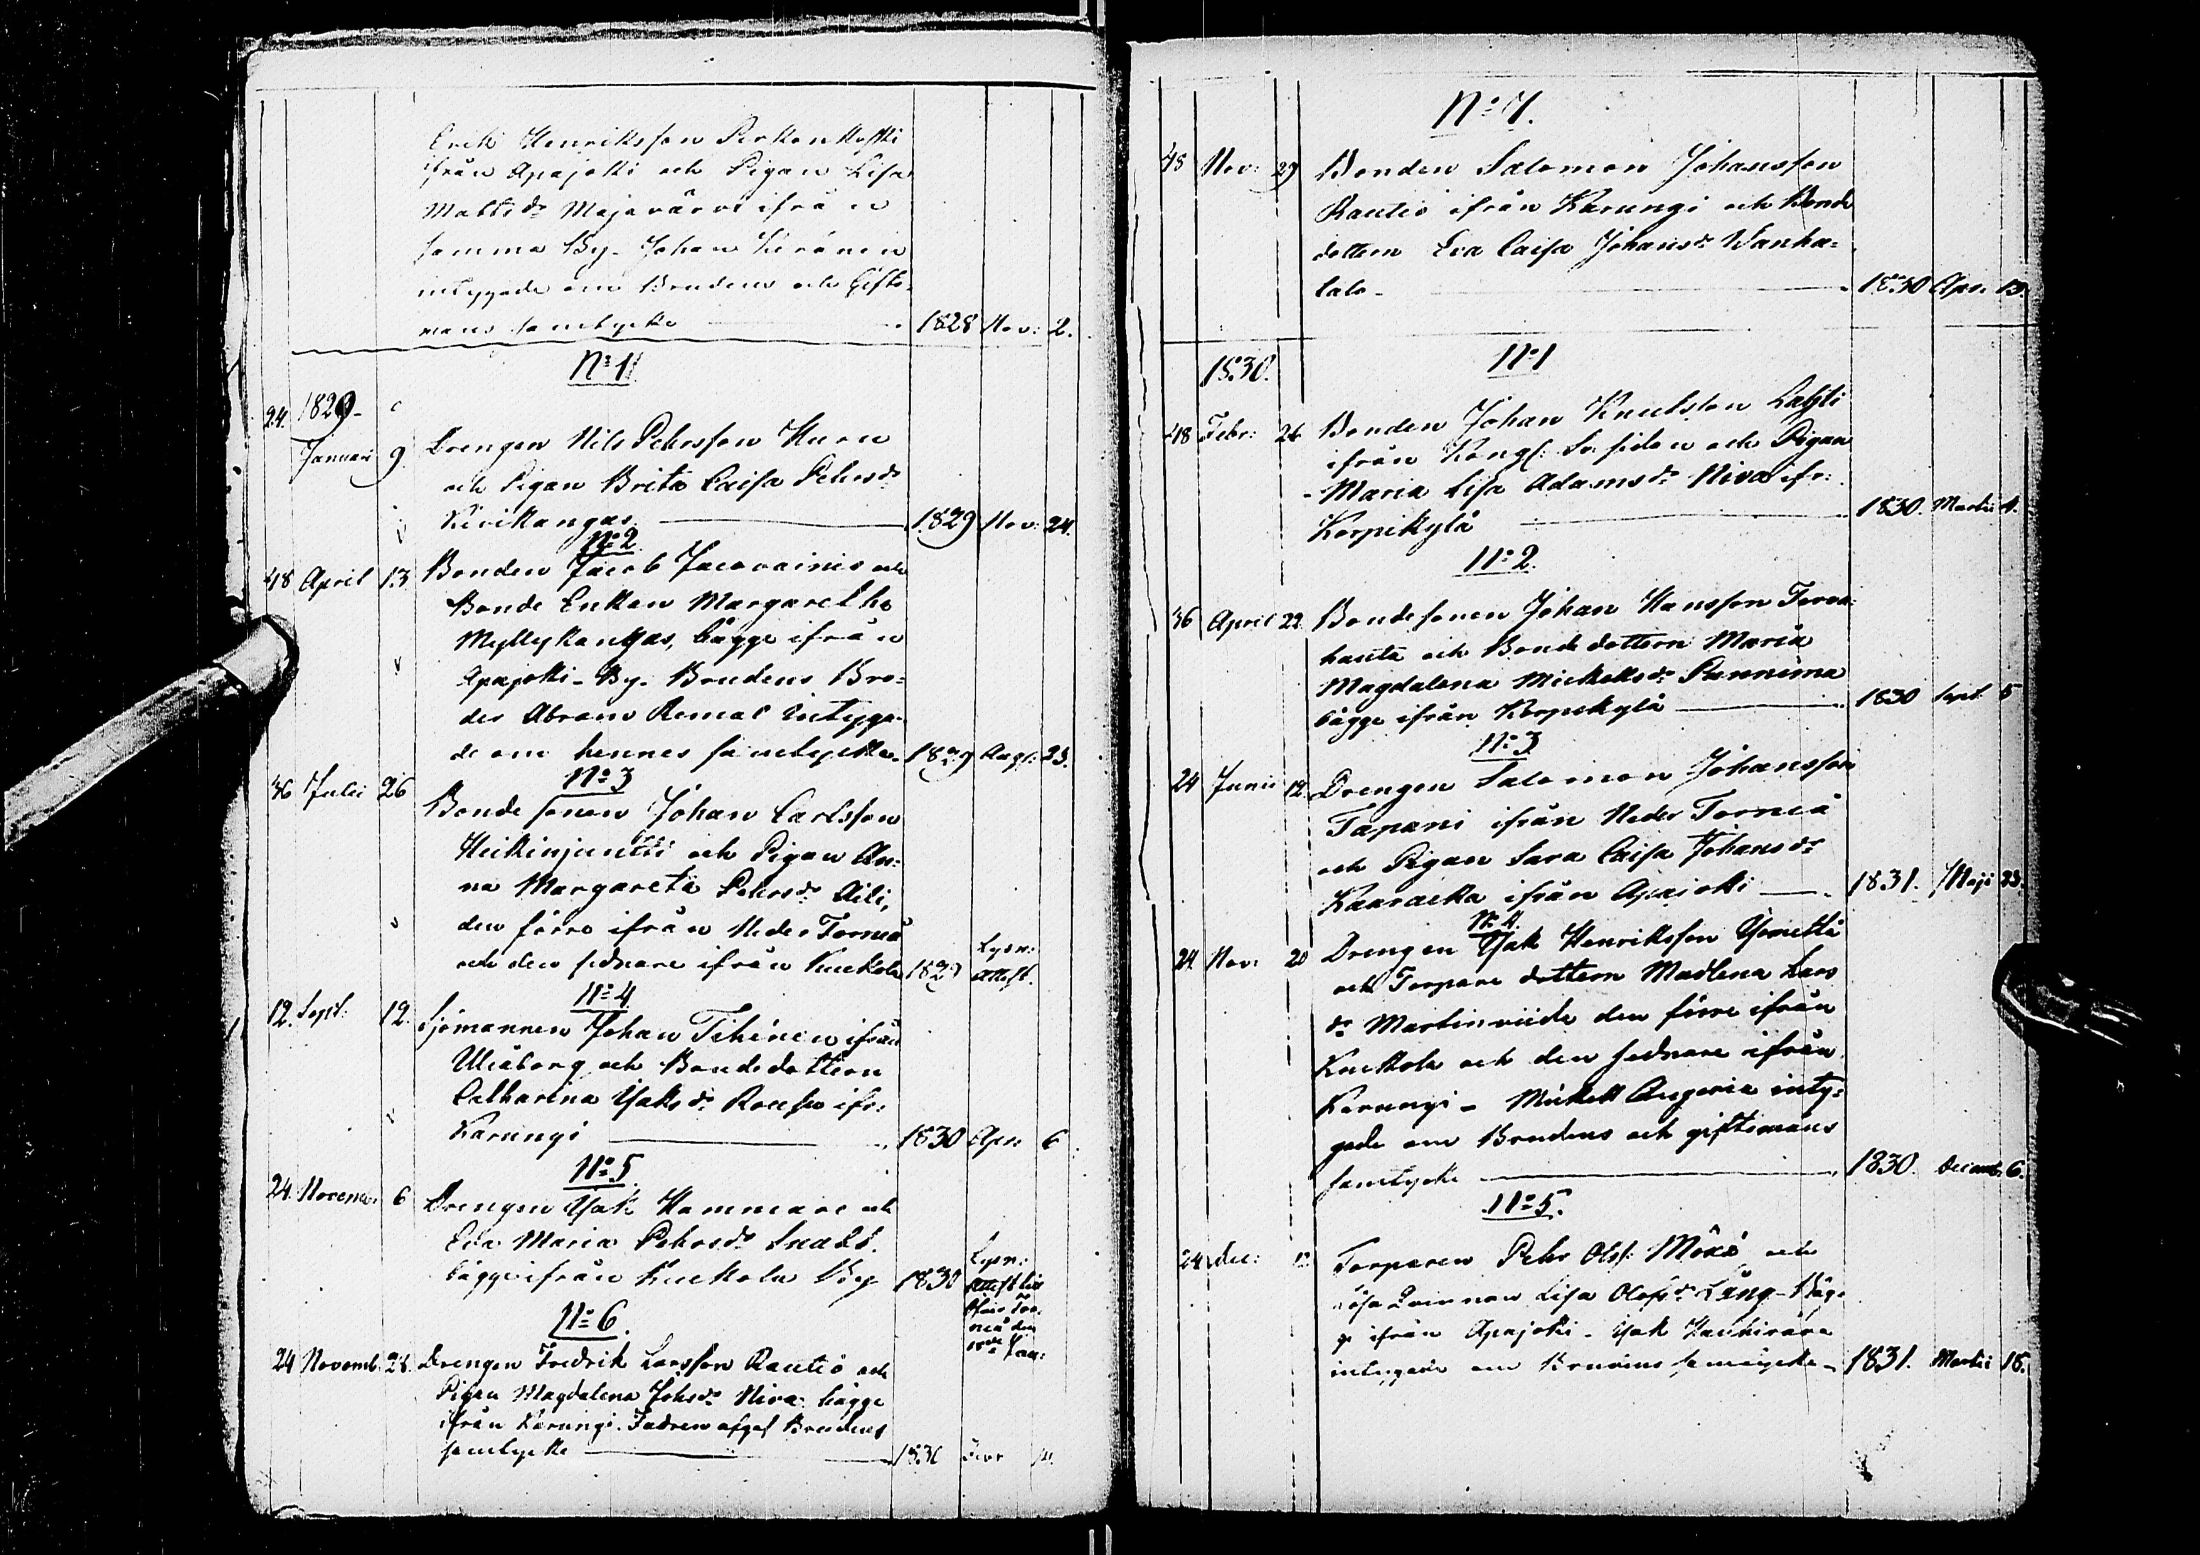 Erik Henriksson Perkonkoski
ifrån Apajoki och Pigan Lisa
Mattsdr Majavärvi ifrån
samma By. Johan Keränen
intygade om Brudens och Gifto-
mans samtycke 1828 Nov: 2.
No 1
24. 1829
Januari 9 Drengen Nils Pehrsson Kuru
och Pigan Brita Caisa Pehrsdr
Kivikangas 1829 Nov: 24.
No 2
48 April 13 Bonden Jacob Jacovainio och
Bonde Enkan Margaretha
Myllykangas, bägge ifrån
Apajoki By. Brudens Bro-
der Abram Remal intyga-
de om hennes samtycke 1829 Aug: 23.
No 3
36 Julii 26 Bonde sonen Johan Carlsson
Heikinjuntti och Pigan An-
na Margareta Pehrsdr Aili,
den förre ifrån Neder Torneå
och den sednare ifrån Kuckola 1829 Lysn: Attest.
No 4
12. Sept: 12. Sjömannen Johan Tihinen ifrån
Uleåborg och Bondedottern
Catharina Isaksdr Rousu ifr:
Karungi 1830 Apr: 6
No 5
24. Novemb: 6 Drengen Isak Hammare och
Eva Maria Pehrsdr Snabb.
bägge ifrån Kuckola By 1830 Lysn:
Attest till
Öfver Tor-
neå den
Jan:
No 6.
24 Novemb. 28. Drengen Fredrik Larsson Rautio och
Pigan Magdalena Johsdr Niva bägge
ifrån Karungi. Fadren afgaf Brudens
samtycke 1830
No 7.
48 Nov: 29 Bonden Salomon Johansson
Rautio ifrån Karungi och Bonde
dottern Eva Caisa Johansdr Wanha-
talo 1830 Apr. 13.
1830. No 1
48 Febr: 26 Bonden Johan Knutsson Lahti
ifrån Kongl: Sv: sidan och Pigan
Maria Lisa Adamsdr Niva ifr:
Korpikylä 1830. Martii 4.
No 2.
36 April 22 Bondesonen Johan Hansson Terva-
hauta och Bonde dottern Maria
Magdalena Mickelsdr Punnima
bägge ifrån Korpikylä 1830 Sept. 5
No 3
24 Junii 12. Drengen Salomon Johansson
Tapani ifrån Neder Torneå
och Pigan Sara Caisa Johansdr
Kaaracka ifrån Apajoki 1831. Maji 23.
No 4.
24. Nov: 20 Drengen Isak Henriksson
och Torpare dottern Madlena Lars
dr Martinviida den förre ifrån
Kuckola och den sednare ifrån
Karungi - Mickell Angeria inty-
gade om Brudens och giftomans
samtycke 1830. Decemb. 6.
No 5.
24 Dec: Torparen Pehr Olss: Mäki och
Lösa Qvinnan Lisa Olofsdr Lång - Bäg-
ge ifrån Apajoki. Isak Kauhiraara
intygade om Brudens samtycke 1831. Martii 18.